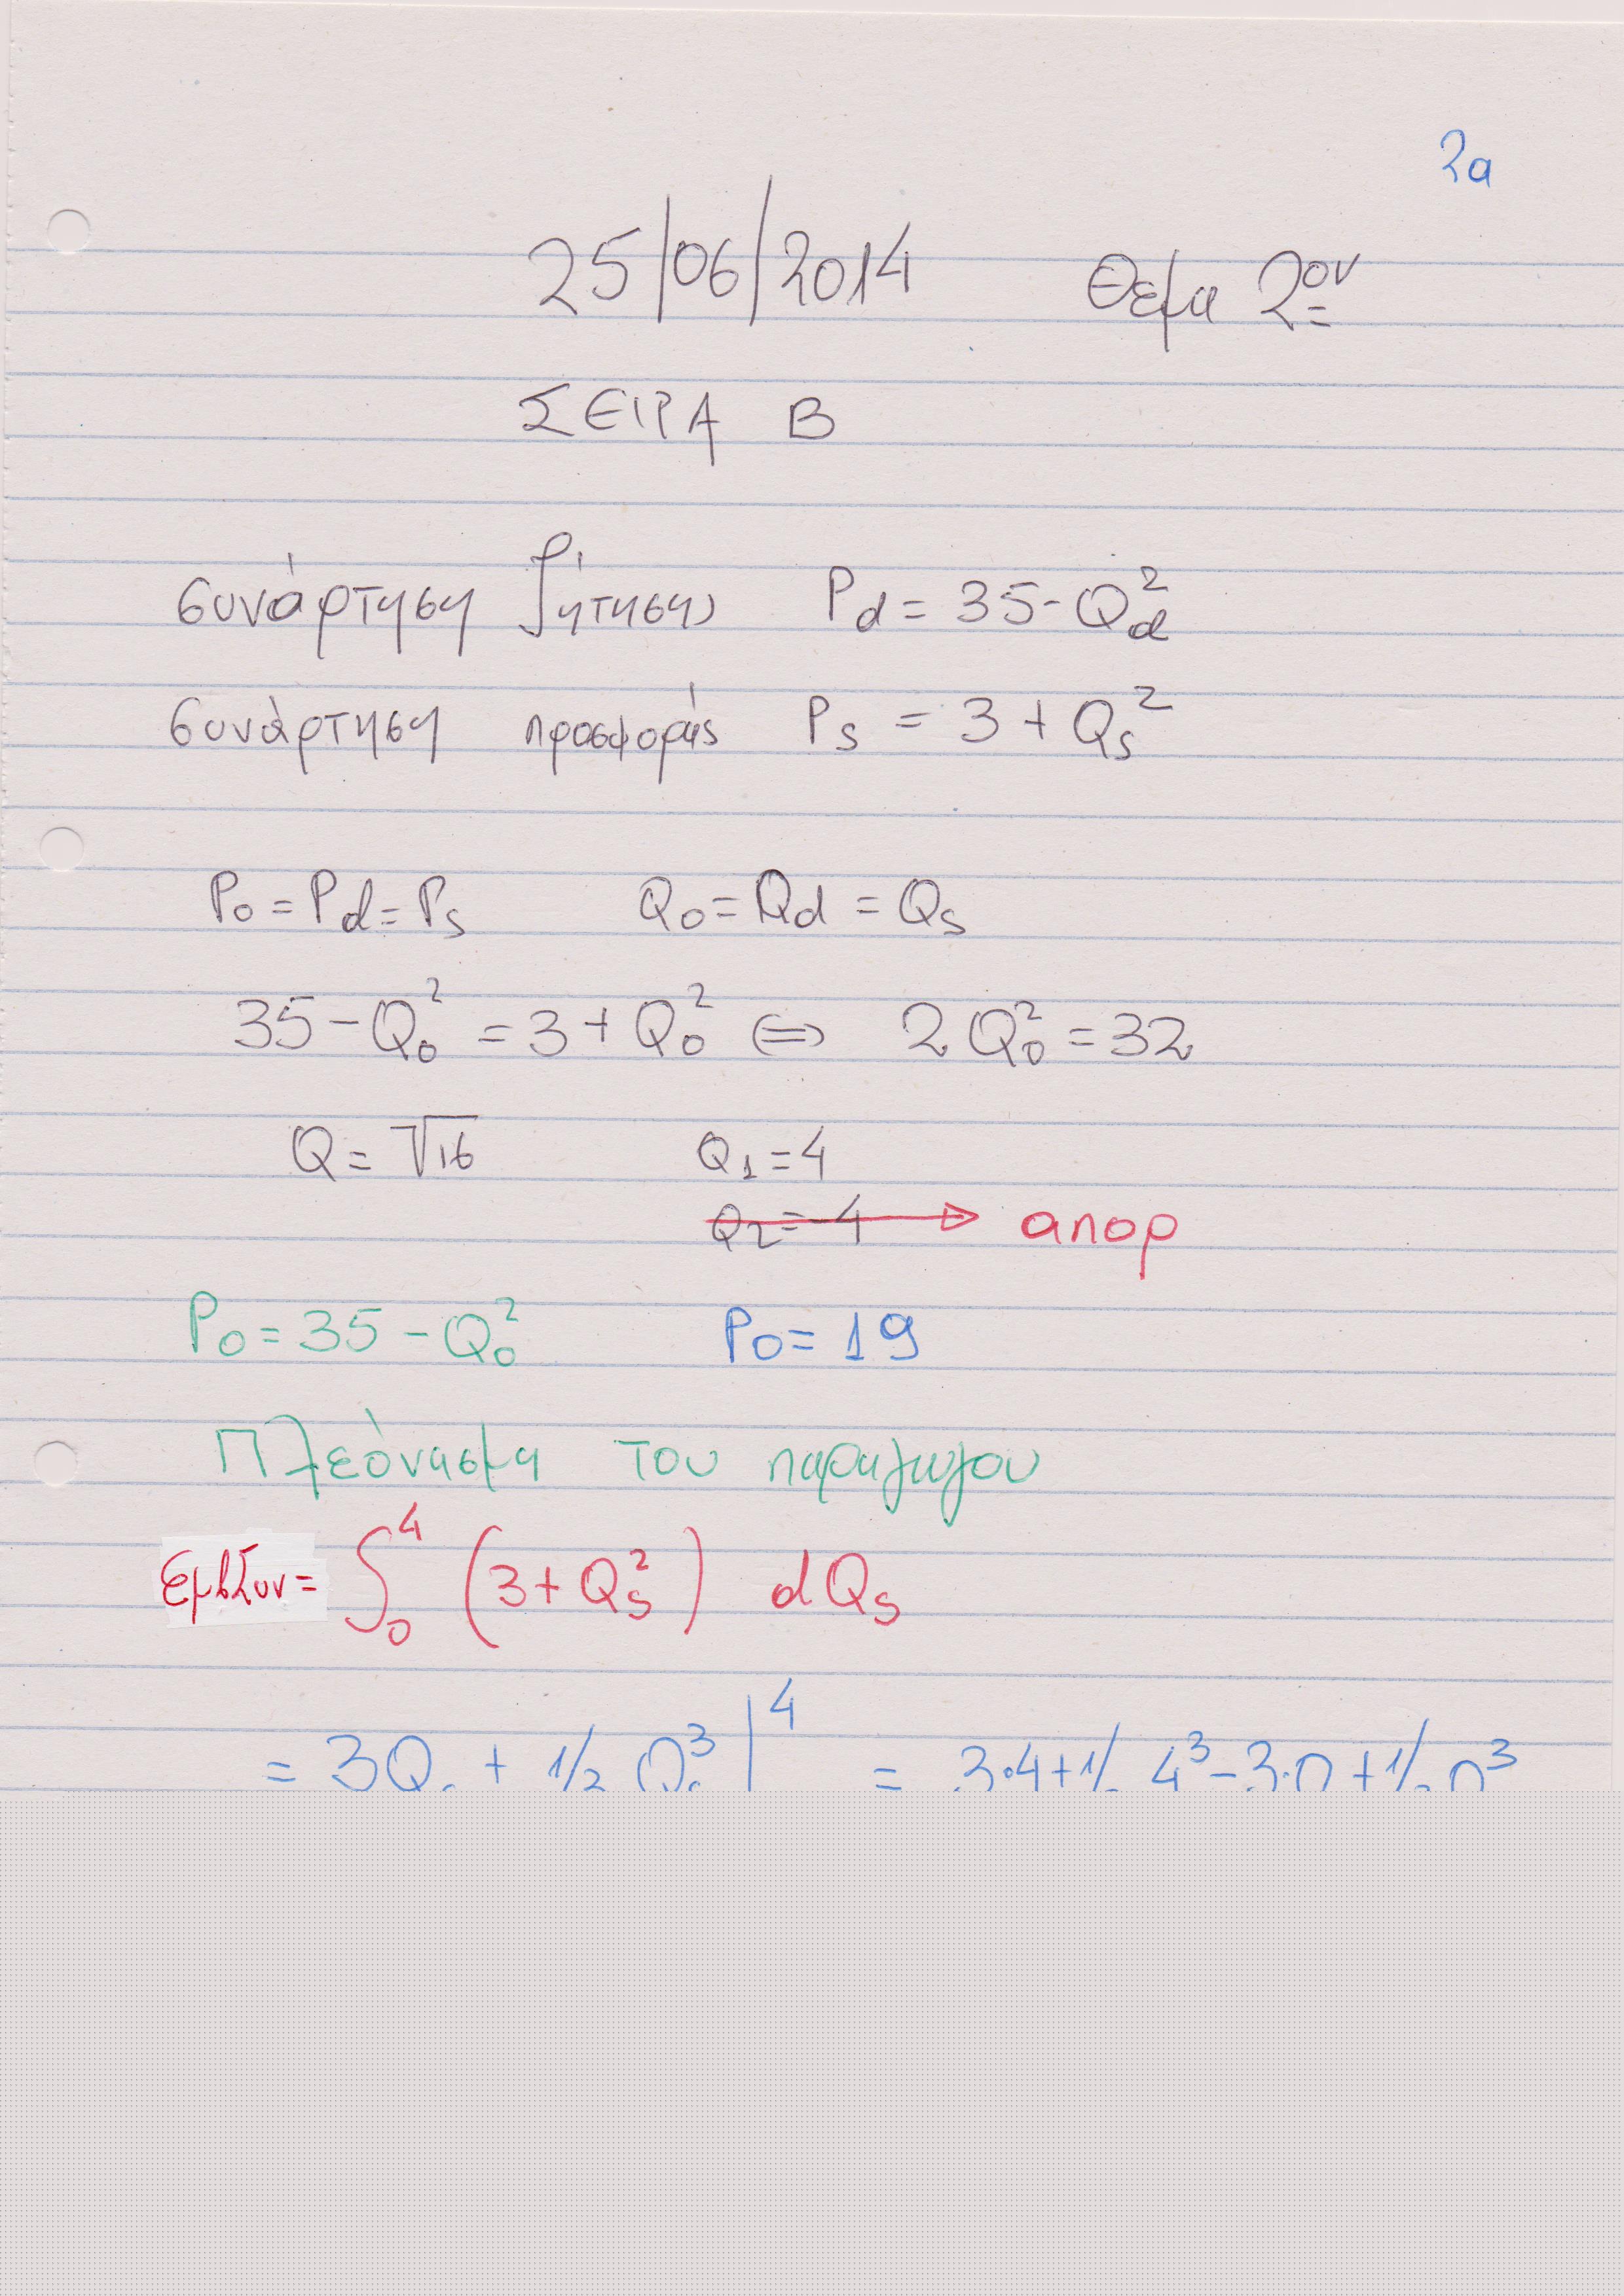 2α
25/06/2014 Θεμα 2ον
ΣΕΙΡΑ Β
συνάρτηση ζήτησης Pd = 35 - Qd²
συνάρτηση προσφοράς Ps = 3 + Qs²
P0 = Pd = Ps Q0 = Qd = Qs
35 - Q0² = 3 + Q0² ⇔ 2Q0² = 32
Q = √16 Q1 = 4
Q2 = -4 → απορ
P0 = 35 - Q0² P0 = 19
Πλεόνασμα του παραγωγου
ΕμβΣυν = ∫₀⁴ (3 + Qs²) dQs